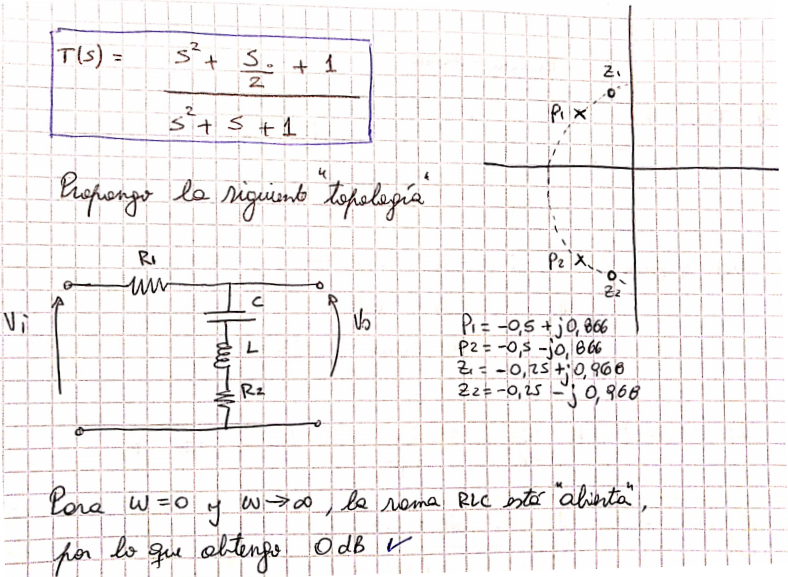 T(s) = s² + s/2 + 1
s² + s + 1
Z1
P1
P2
Z2
Propongo la siguiente "topología"
R1
Vi
C
L
R2
Vo
P1 = -0,5 + j0,866
P2 = -0,5 - j0,866
Z1 = -0,25 + j0,968
Z2 = -0,25 - j0,968
Para w=0 y w→∞, la rama RLC está "abierta",
por lo que obtengo 0dB ✓